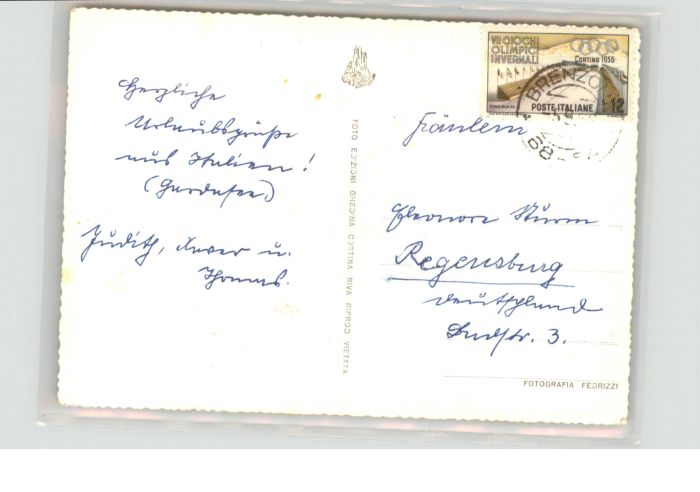 Herzliche
Urlaubsgrüße
aus Italien!
(Gardasee)
Judith, u.
Thomas.
FOTO EDIZIONI GHEDINA CORTINA RIVA RIPROD VIETATA
VII GIOCHI
OLIMPICI
INVERNALI
CORTINA 1956
POSTE ITALIANE
12
BRENZO
Fräulein
Eleonore Sturm
Regensburg
Deutschland
str. 3.
FOTOGRAFIA FEDRIZZI